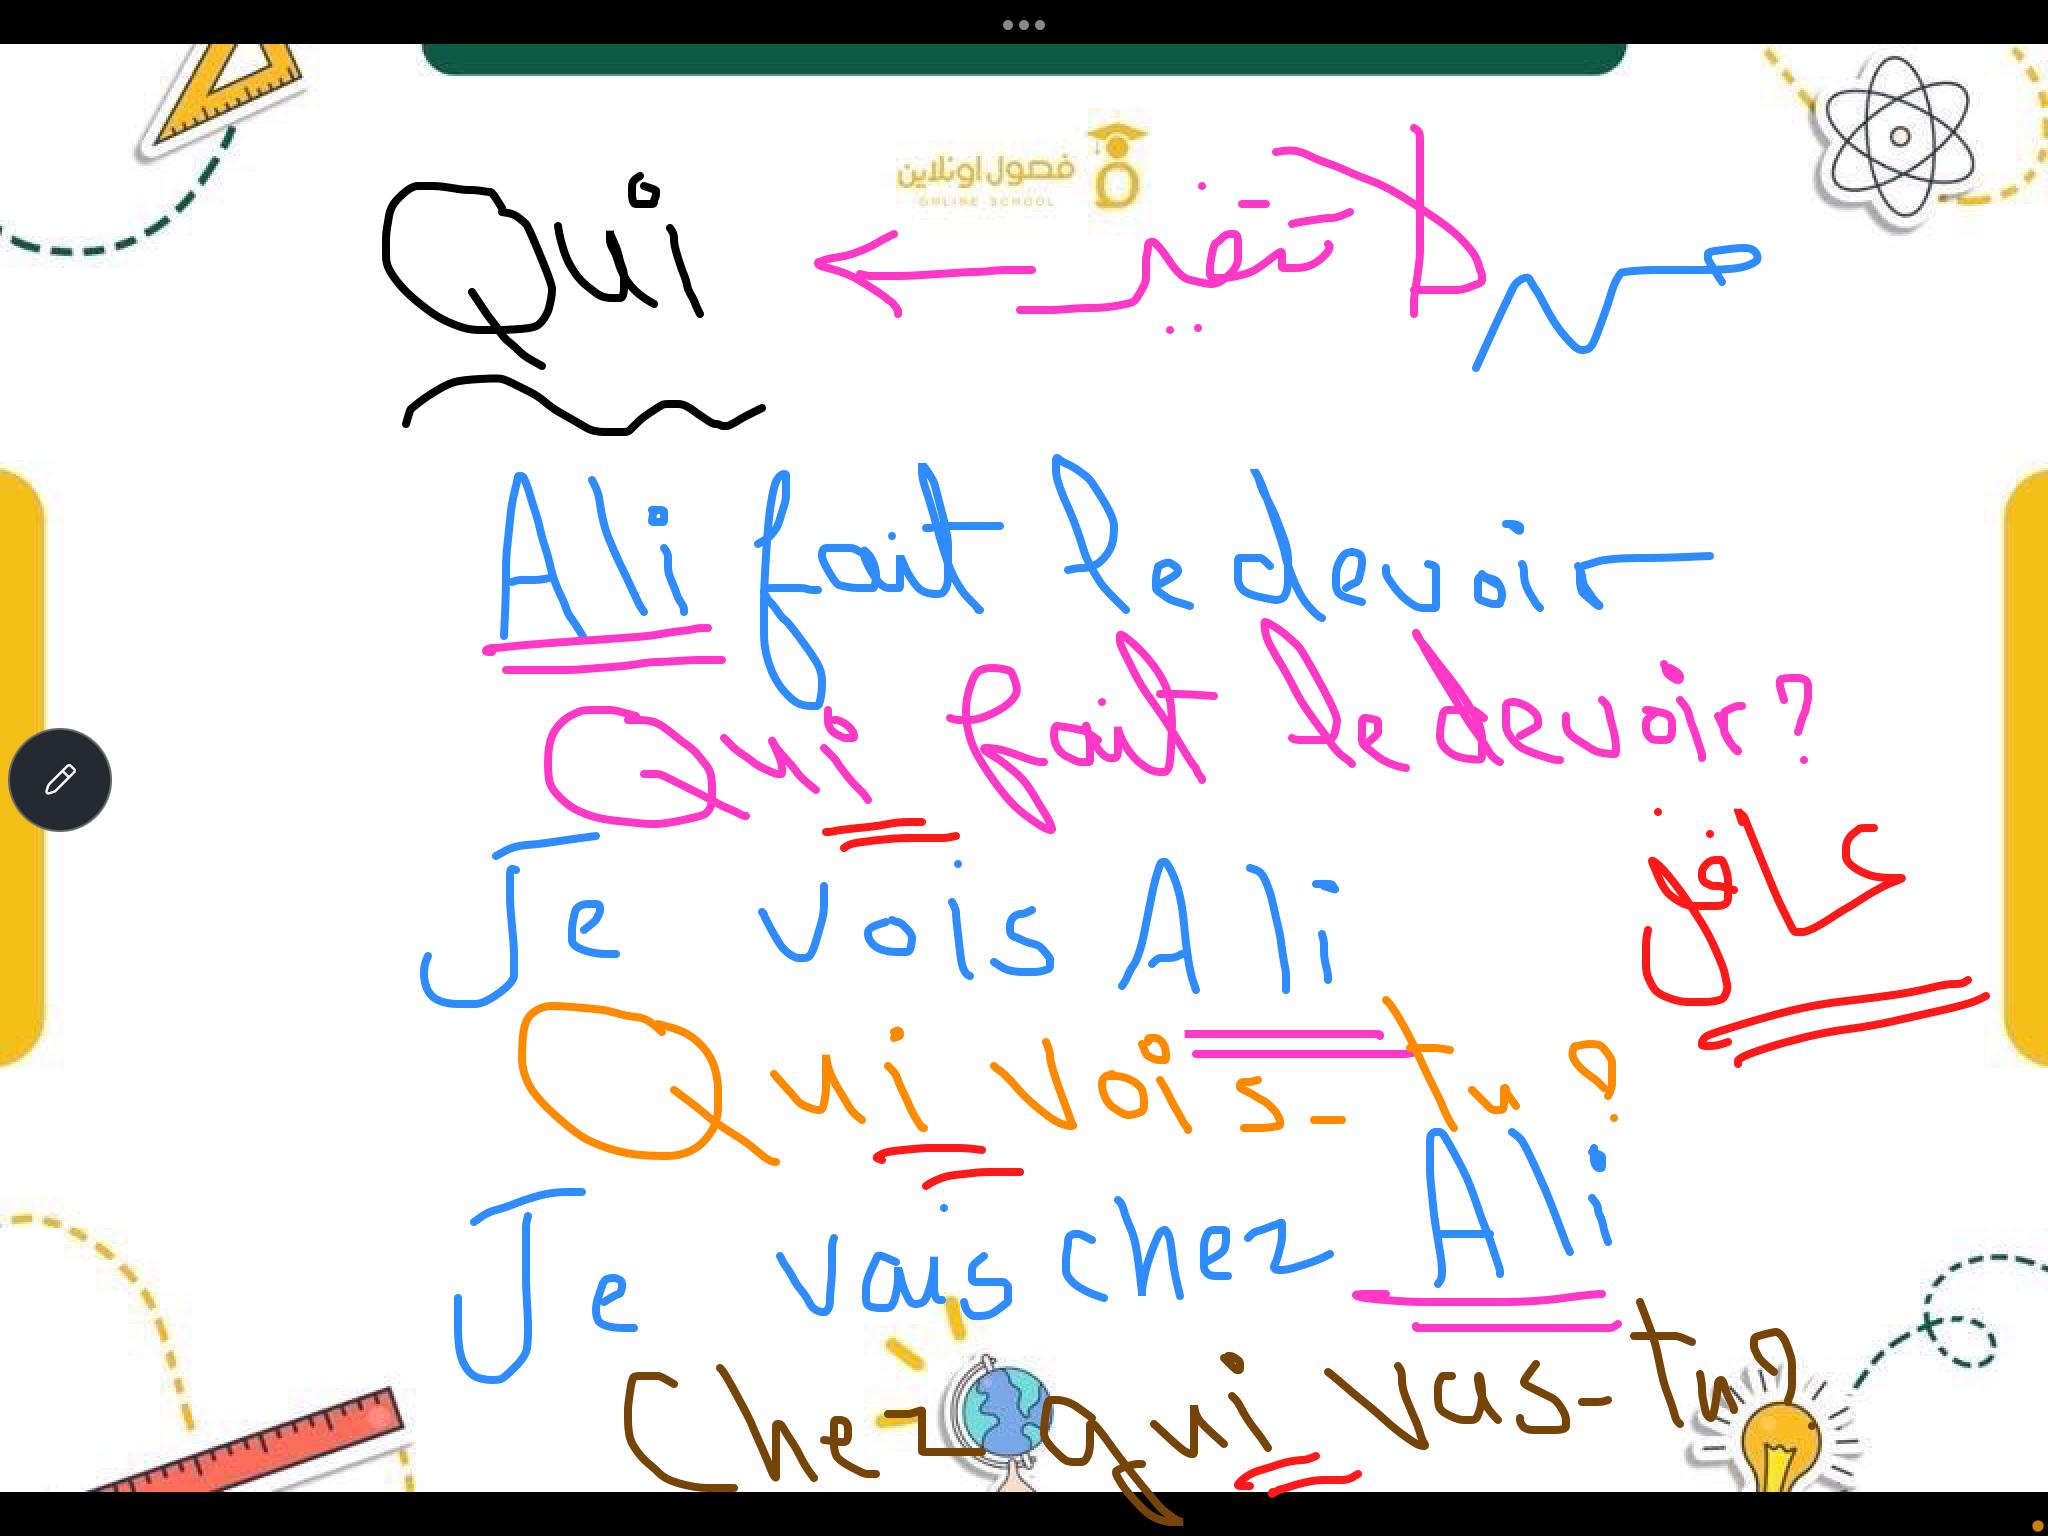 فصول اونلاين
ONLINE SCHOOL
Qui ← لا تتغير
Ali fait le devoir
Qui fait le devoir?
Je vois Ali
عاقل
Qui vois-tu?
Je vais chez Ali
Chez qui vas-tu?